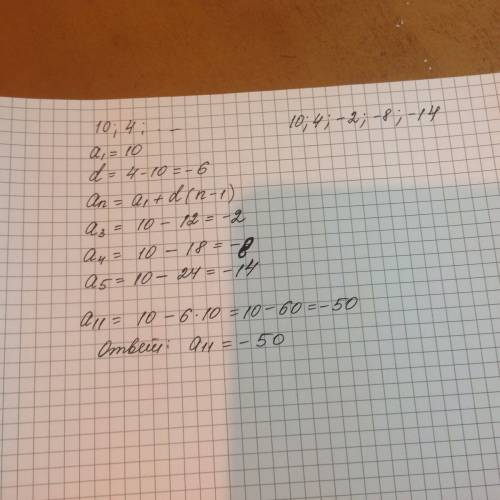 10; 4; _
10; 4; -2; -8; -14
a₁ = 10
d = 4-10 = -6
aₙ = a₁ + d(n-1)
a₃ = 10 - 12 = -2
a₄ = 10 - 18 = -8
a₅ = 10 - 24 = -14
a₁₁ = 10 - 6·10 = 10 - 60 = -50
Ответ: a₁₁ = -50